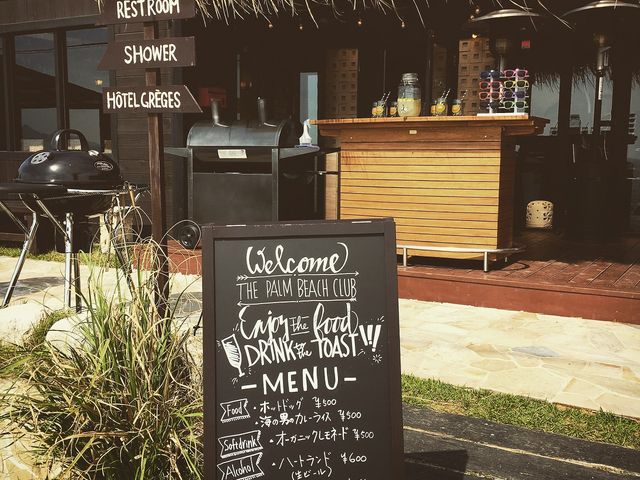 RESTROOM
SHOWER
HÔTEL GRÈGES
Welcome
THE PALM BEACH CLUB
Enjoy the food
DRINK to the TOAST!!!
-MENU-
Food
・ホットドッグ ¥500
・海の男のカレーライス ¥500
Softdrink
・オーガニックレモネード ¥500
Alcohol
・ハートランド ¥600
(生ビール)